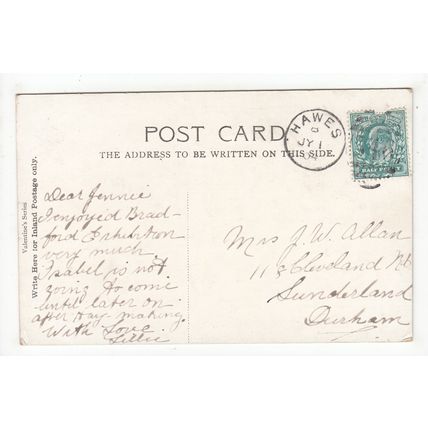 POST CARD.
THE ADDRESS TO BE WRITTEN ON THIS SIDE.
Valentine's Series
Write Here for Inland Postage only.
HAWES
JY 1
HALF PENNY
Dear Jennie
I enjoyed Brad-
ford Exhibition
very much
Isabel is not
going to come
until later on
after Hay making.
With Love
Lillie
Mrs J. W. Allan
Cleveland Rd
Sunderland
Durham